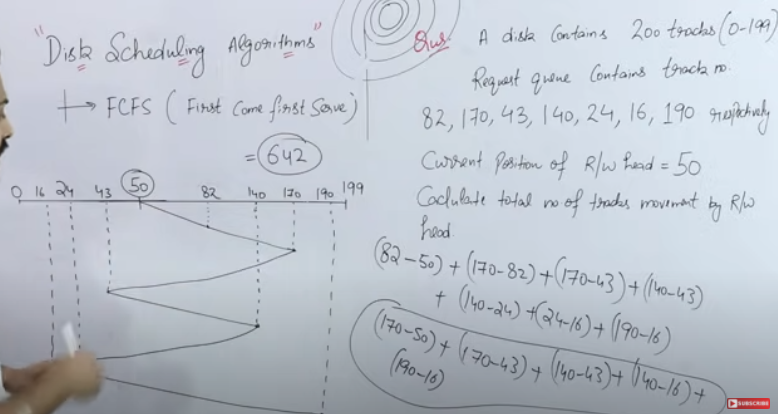 "Disk Scheduling Algorithms"
→ FCFS ( First Come first Serve )
= 642
0 16 24 43 50 82 140 170 190 199
Ques A disk contains 200 tracks (0-199)
Request queue contains track no.
82, 170, 43, 140, 24, 16, 190 respectively
Current position of R/W head = 50
Caclulate total no of tracks movement by R/W
head.
(82-50) + (170-82) + (170-43) + (140-43)
+ (140-24) + (24-16) + (190-16)
(170-50) + (170-43) + (140-43) + (140-16) +
(190-16)
SUBSCRIBE